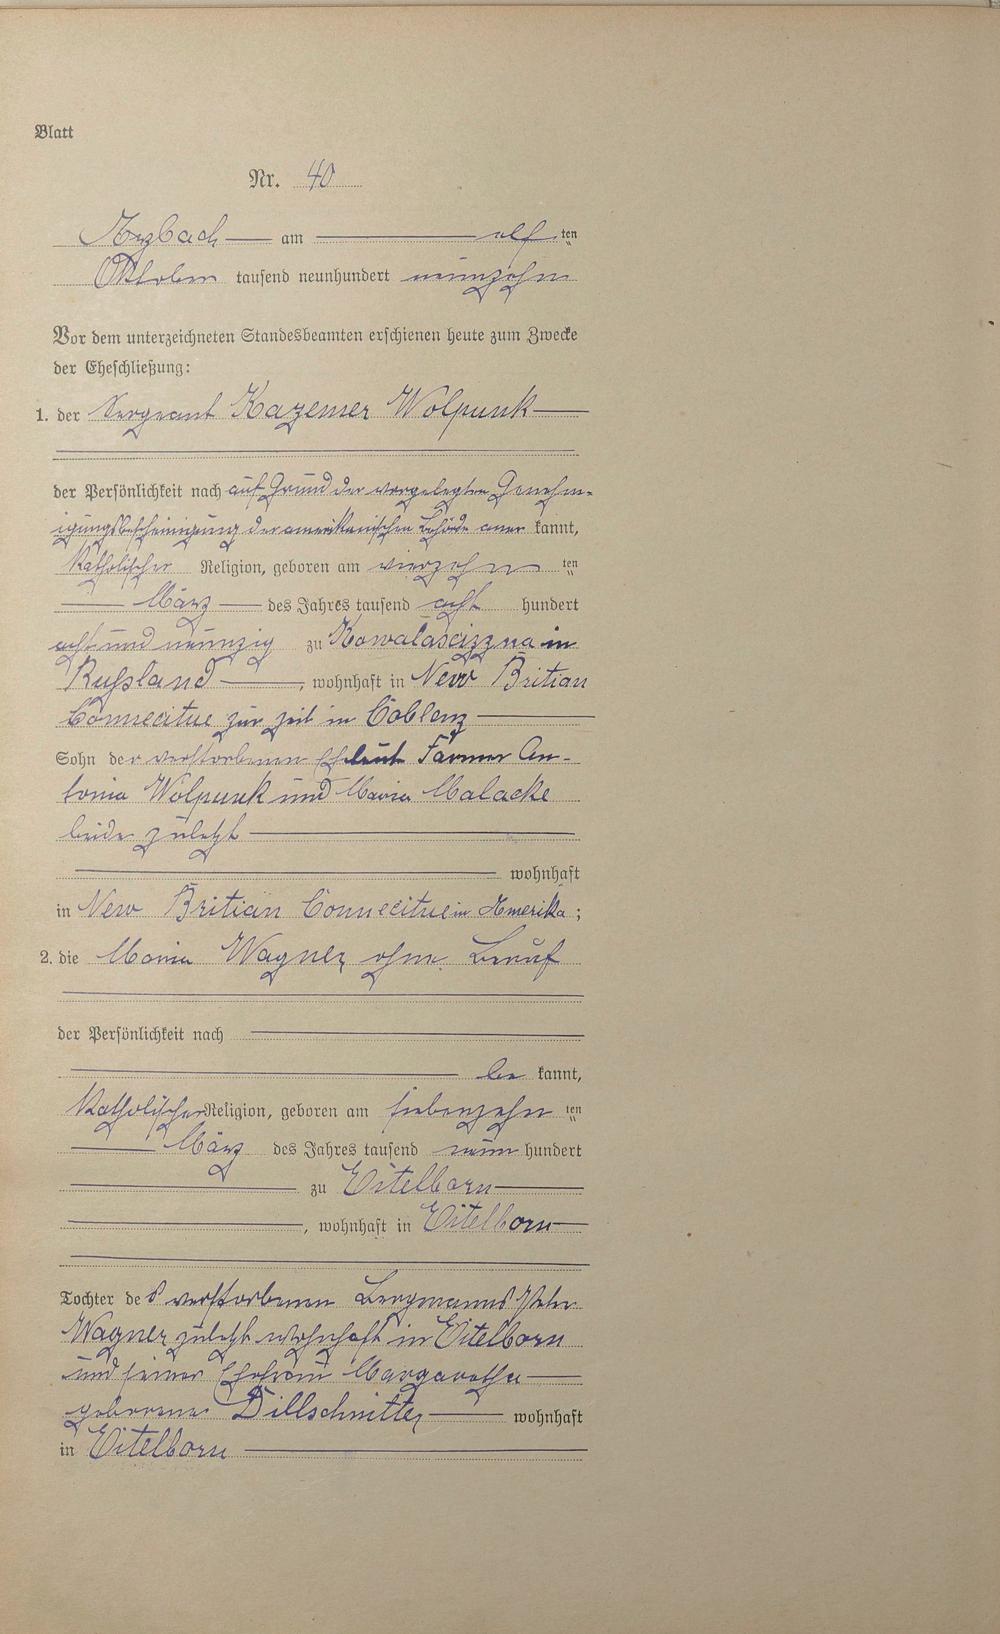 Blatt
Nr. 40
Arzbach am elf ten
Oktober tausend neunhundert neunzehn
Vor dem unterzeichneten Standesbeamten erschienen heute zum Zwecke
der Eheschließung:
1. der Sergeant Kazemer Wolpunk
der Persönlichkeit nach auf Grund der vorgelegten Genehm-
igungsbescheinigung der amerikanischen Behörde aner kannt,
katholischer Religion, geboren am vierzehn ten
März des Jahres tausend acht hundert
acht und neunzig zu Kowalascizzna in
Russland, wohnhaft in New Britian
Connecitue zur Zeit in Coblenz
Sohn der verstorbenen Eheleute Farmer An-
tonia Wolpunk und Maria Malacke
beide zuletzt
wohnhaft
in New Britian Connecitue in Amerika;
2. die Maria Wagner, ohne Beruf
der Persönlichkeit nach
be kannt,
katholischer Religion, geboren am siebenzehn ten
März des Jahres tausend neun hundert
zu Eitelborn
, wohnhaft in Eitelborn
Tochter des verstorbenen Bergmanns Peter
Wagner zuletzt wohnhaft in Eitelborn
und seiner Ehefrau Margaretha
geborene Dillschnitter wohnhaft
in Eitelborn